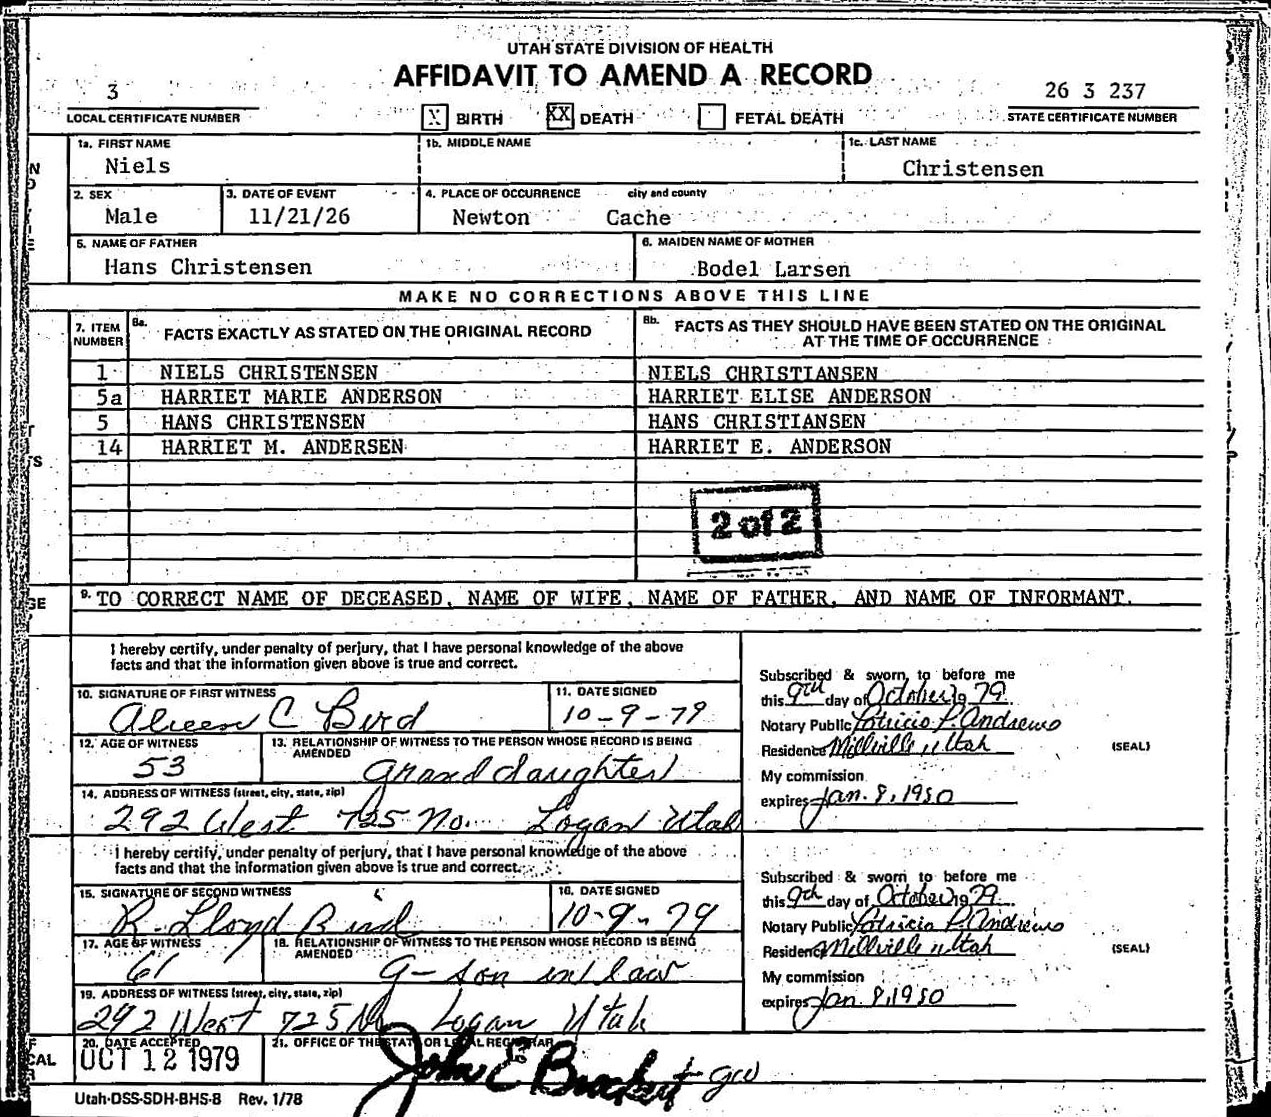 UTAH STATE DIVISION OF HEALTH
AFFIDAVIT TO AMEND A RECORD
3
26 3 237
LOCAL CERTIFICATE NUMBER
X BIRTH XX DEATH FETAL DEATH
STATE CERTIFICATE NUMBER
1a. FIRST NAME 1b. MIDDLE NAME 1c. LAST NAME
Niels Christensen
2. SEX 3. DATE OF EVENT 4. PLACE OF OCCURRENCE city and county
Male 11/21/26 Newton Cache
5. NAME OF FATHER 6. MAIDEN NAME OF MOTHER
Hans Christensen Bodel Larsen
MAKE NO CORRECTIONS ABOVE THIS LINE
7. ITEM NUMBER 8a. FACTS EXACTLY AS STATED ON THE ORIGINAL RECORD 8b. FACTS AS THEY SHOULD HAVE BEEN STATED ON THE ORIGINAL AT THE TIME OF OCCURRENCE
1 NIELS CHRISTENSEN NIELS CHRISTIANSEN
5a HARRIET MARIE ANDERSON HARRIET ELISE ANDERSON
5 HANS CHRISTENSEN HANS CHRISTIANSEN
14 HARRIET M. ANDERSEN HARRIET E. ANDERSON
2 of 2
9. TO CORRECT NAME OF DECEASED, NAME OF WIFE, NAME OF FATHER, AND NAME OF INFORMANT.
I hereby certify, under penalty of perjury, that I have personal knowledge of the above
facts and that the information given above is true and correct.
10. SIGNATURE OF FIRST WITNESS 11. DATE SIGNED
Aleen C Bird 10-9-79
12. AGE OF WITNESS 13. RELATIONSHIP OF WITNESS TO THE PERSON WHOSE RECORD IS BEING AMENDED
53 Granddaughter
14. ADDRESS OF WITNESS (street, city, state, zip)
292 West 725 No. Logan Utah
Subscribed & sworn to before me
this 9th day of October 1979
Notary Public Patricia P. Andrews
Residence Millville Utah
(SEAL)
My commission
expires Jan. 8, 1980
I hereby certify, under penalty of perjury, that I have personal knowledge of the above
facts and that the information given above is true and correct.
15. SIGNATURE OF SECOND WITNESS 16. DATE SIGNED
R. Lloyd Bird 10-9-79
17. AGE OF WITNESS 18. RELATIONSHIP OF WITNESS TO THE PERSON WHOSE RECORD IS BEING AMENDED
61 G-son in law
19. ADDRESS OF WITNESS (street, city, state, zip)
292 West 725 N Logan Utah
Subscribed & sworn to before me
this 9th day of October 1979
Notary Public Patricia P. Andrews
Residence Millville Utah
(SEAL)
My commission
expires Jan. 8, 1980
20. DATE ACCEPTED 21. OFFICE OF THE STATE OR LOCAL REGISTRAR
OCT 12 1979 John E Brockert gw
Utah-DSS-SDH-BHS-8 Rev. 1/78